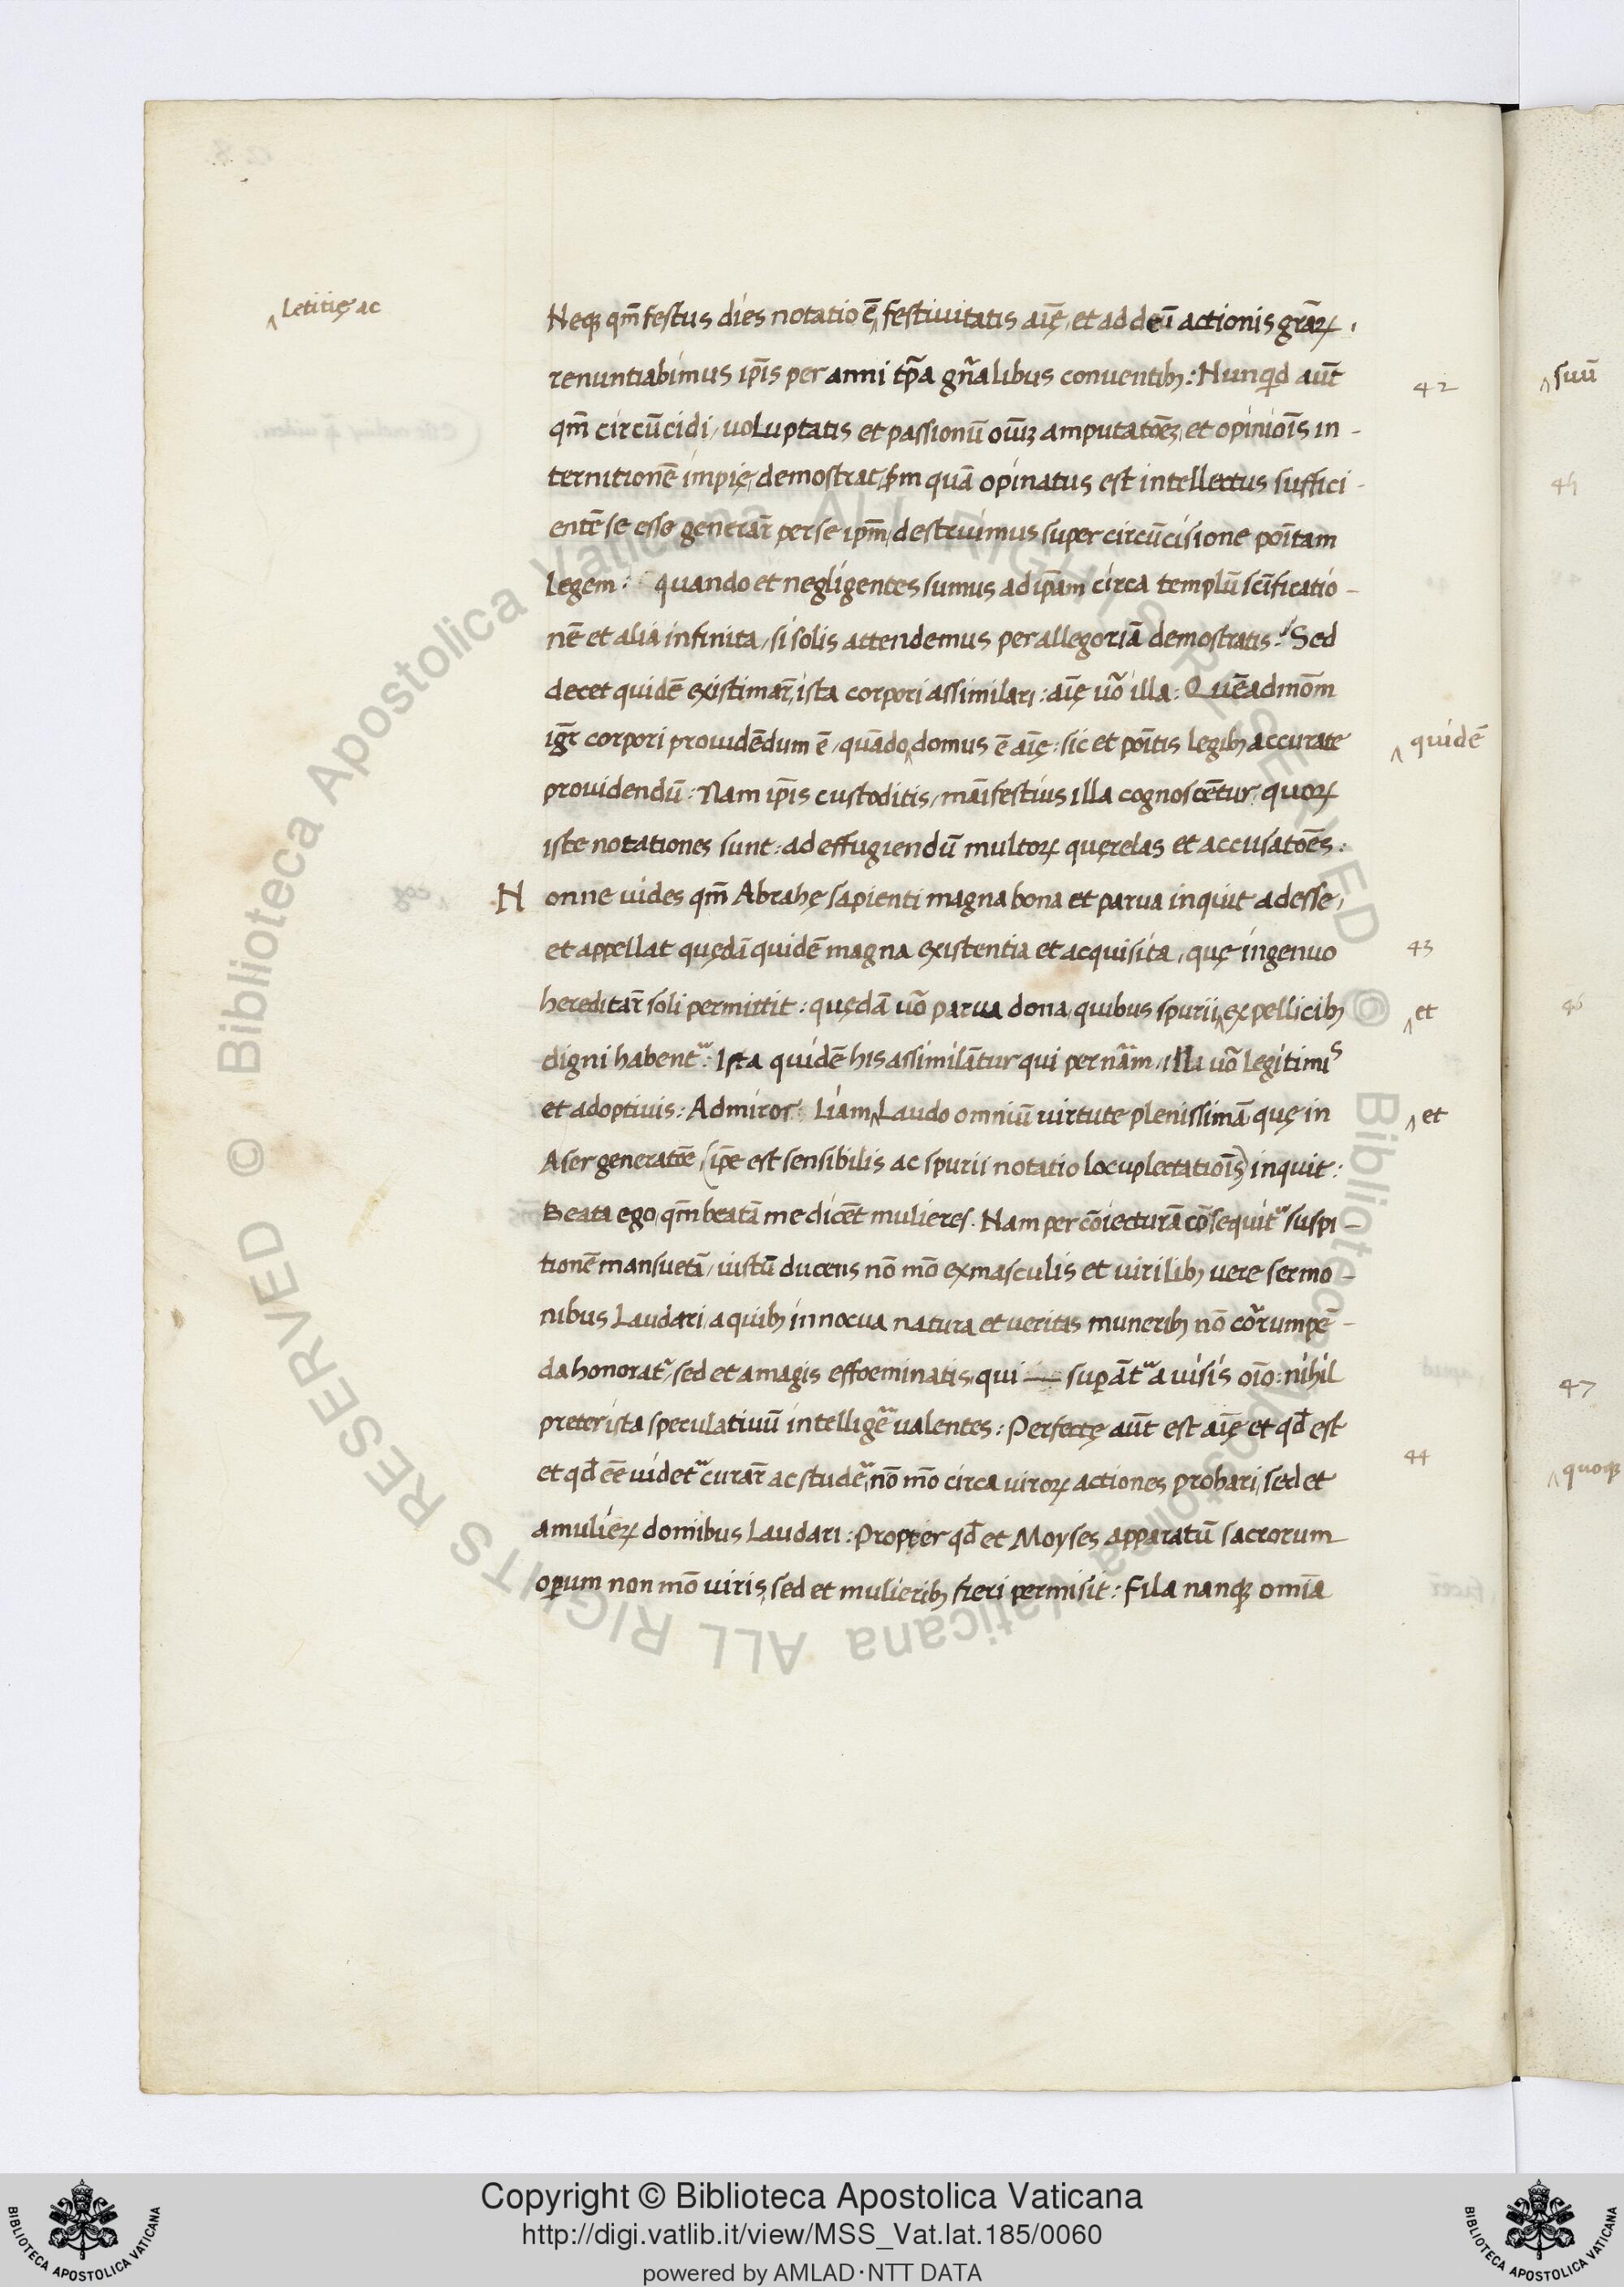 Letitię ac
Neq; qm̄ festus dies notatio ē festiuitatis aīę, et ad deū actionis grārꝝ,
renuntiabimus ip̄is per anni tp̄a gn̄alibus conuentib;: Nunqd̄ aūt
42
suū
qm̄ circūcidi, uoluptatis et passionū oīuꝫ amputatōēꝫ, et opiniōis in-
ternitionē impię demostrat, ẜm quā opinatus est intellectus suffici-
45
entē se esse generar̄ per se ip̄m, destruimus super circūcisione poītam
legem: quando et negligentes sumus ad ip̄am circa templū scīficatio-
nē et alia infinita, si solis attendemus per allegoriā demostratis: Sed
decet quidē existimar̄, ista corpori assimilari: aīę uō illa: Quēadmōm
igr̄ corpori prouidēdum ē, quādo domus ē aīę: sic et poītis legib; accurate
quidē
prouidendū: Nam ip̄is custoditis, māifestius illa cognoscētur, quorꝝ
iste notationes sunt: ad effugiendū multorꝝ querelas et accusatōes:
Nonne uides qm̄ Abrahę sapienti magna bona et parua inquit adesse,
et appellat quędā quidē magna existentia et acquisita, quę ingenuo
43
hereditar̄ soli permittit: quędā uō parua dona, quibus spurii, ex pellicib;
et
46
digni habent᷑: Ista quidē his assimilātur qui per nāam, illa uō legitimis
et adoptiuis: Admiror Liam Laudo omniū uirtute plenissimā, quę in
et
Aser generatōe (ip̄e est sensibilis ac spurii notatio locuplectatiōis) inquit:
Beata ego, qm̄ beatā me dicēt mulieres. Nam per cōiecturā cōsequit᷑ suspi-
tionē mansuetā, iustū ducens nō mō ex masculis et uirilib; uere sermo-
nibus Laudari, a quib; innocua natura et ueritas muneribꝫ nō cōrrumpē-
da honorat᷑, sed et a magis effoeminatis, qui superāt᷑ a uisis oīo: nihil
47
preter ista speculatiuū intelligēr̄ ualentes: Perfectę aūt est aīę et qd̄ est
et qd̄ eē uidet᷑ curar̄ ac studēr̄, nō mō circa uirorꝝ actiones probari, sed et
44
quoq;
a mulierꝝ domibus Laudari: Propter qd̄ et Moyses apparatū sacrorum
operum non mō uiris, sed et mulierib; fieri permisit: Fila nanq; omīa
Copyright © Biblioteca Apostolica Vaticana
http://digi.vatlib.it/view/MSS_Vat.lat.185/0060
powered by AMLAD·NTT DATA
BIBLIOTECA APOSTOLICA VATICANA
BIBLIOTECA APOSTOLICA VATICANA
© Biblioteca Apostolica Vaticana ALL RIGHTS RESERVED
© Biblioteca Apostolica Vaticana ALL RIGHTS RESERVED